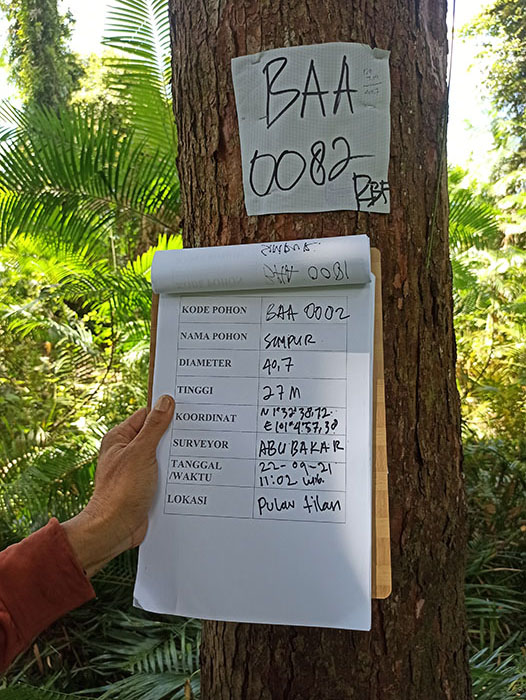 BAA
0082
RBF
BAA 0081
KODE POHON BAA 0002
NAMA POHON SIMPUR
DIAMETER 40,7
TINGGI 27 M
KOORDINAT N 1°32'38,72
E 101°4'57,38
SURVEYOR ABU BAKAR
TANGGAL 22-09-21
/WAKTU 11:02 WIB.
LOKASI Pulau tilan